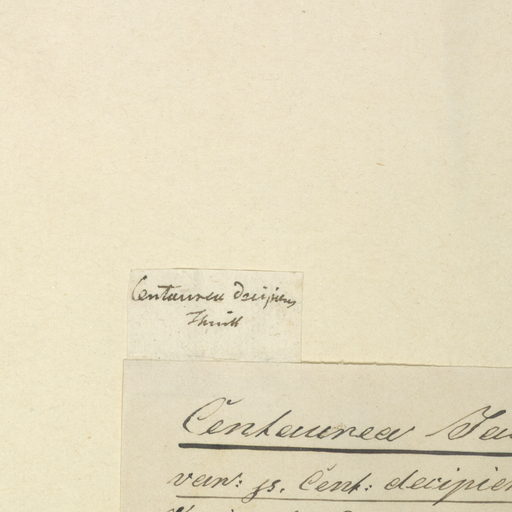 Centaurea decipiens
Thuill
Centaurea Ja
var: Cent: decipien